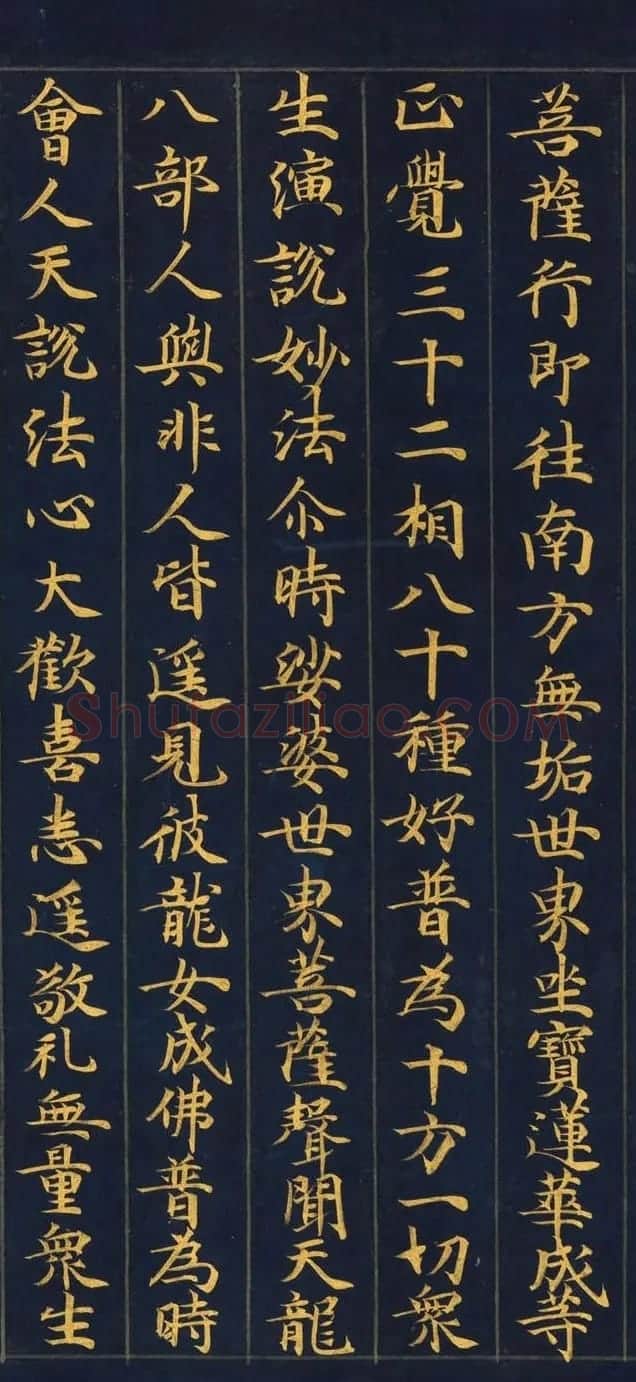 菩薩行即往南方無垢世界坐寶蓮華成等
正覺三十二相八十種好普為十方一切衆
生演說妙法尒時娑婆世界菩薩聲聞天龍
八部人與非人皆遥見彼龍女成佛普為時
會人天說法心大歡喜悉遥敬礼無量衆生
Shufaziliao.COM